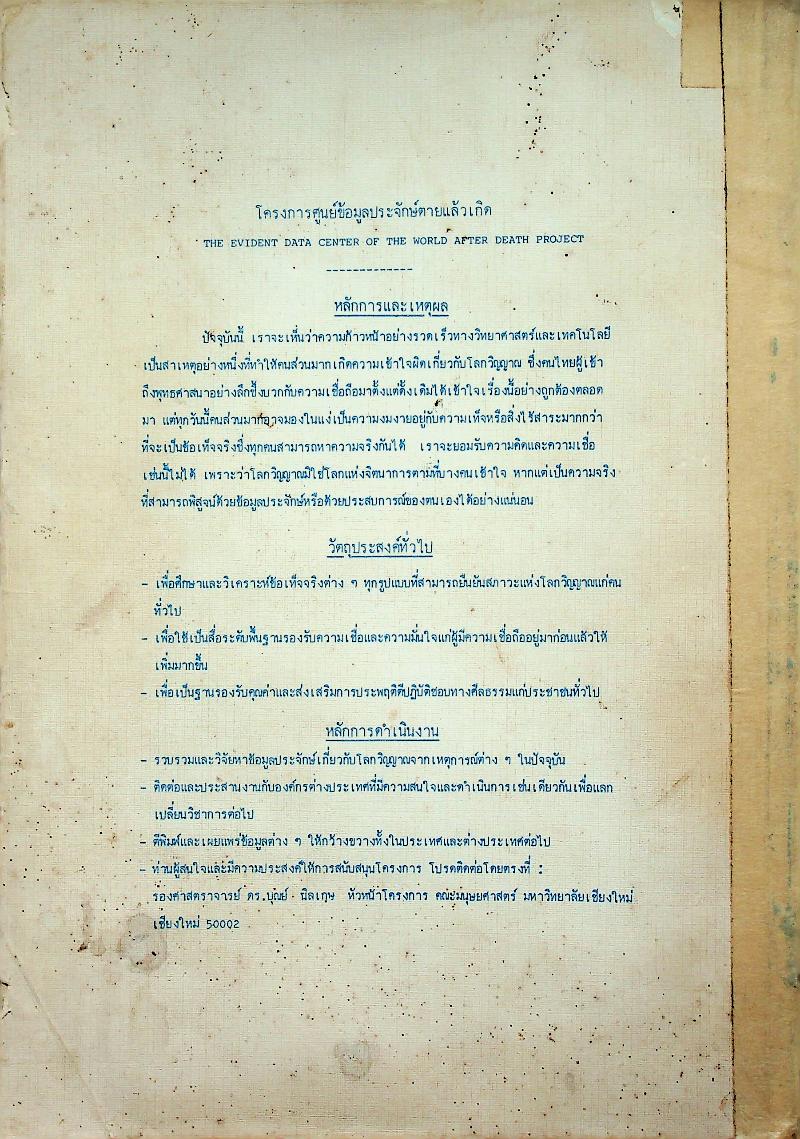 โครงการศูนย์ข้อมูลประจักษ์ตายแล้วเกิด
THE EVIDENT DATA CENTER OF THE WORLD AFTER DEATH PROJECT
-------------
หลักการและเหตุผล
ปัจจุบันนี้ เราจะเห็นว่าความก้าวหน้าอย่างรวดเร็วทางวิทยาศาสตร์และเทคโนโลยี
เป็นสาเหตุอย่างหนึ่งที่ทำให้คนส่วนมากเกิดความเข้าใจผิดเกี่ยวกับโลกวิญญาณ ซึ่งคนไทยผู้เข้า
ถึงพุทธศาสนาอย่างลึกซึ้งบวกกับความเชื่อถือมาตั้งแต่ดั้งเดิมได้เข้าใจเรื่องนี้อย่างถูกต้องตลอด
มา แต่ทุกวันนี้คนส่วนมากอาจมองในแง่เป็นความงมงายอยู่กับความเท็จหรือสิ่งไร้สาระมากกว่า
ที่จะเป็นข้อเท็จจริงซึ่งทุกคนสามารถหาความจริงกันได้ เราจะยอมรับความคิดและความเชื่อ
เช่นนี้ไม่ได้ เพราะว่าโลกวิญญาณมิใช่โลกแห่งจิตนาการตามที่บางคนเข้าใจ หากแต่เป็นความจริง
ที่สามารถพิสูจน์ด้วยข้อมูลประจักษ์หรือด้วยประสบการณ์ของตนเองได้อย่างแน่นอน
วัตถุประสงค์ทั่วไป
- เพื่อศึกษาและวิเคราะห์ข้อเท็จจริงต่าง ๆ ทุกรูปแบบที่สามารถยืนยันสภาวะแห่งโลกวิญญาณแก่คน
ทั่วไป
- เพื่อใช้เป็นสื่อระดับพื้นฐานรองรับความเชื่อและความมั่นใจแก่ผู้มีความเชื่อถืออยู่มาก่อนแล้วให้
เพิ่มมากขึ้น
- เพื่อเป็นฐานรองรับคุณค่าและส่งเสริมการประพฤติดีปฏิบัติชอบทางศีลธรรมแก่ประชาชนทั่วไป
หลักการดำเนินงาน
- รวบรวมและวิจัยหาข้อมูลประจักษ์เกี่ยวกับโลกวิญญาณจากเหตุการณ์ต่าง ๆ ในปัจจุบัน
- ติดต่อและประสานงานกับองค์กรต่างประเทศที่มีความสนใจและดำเนินการเช่นเดียวกันเพื่อแลก
เปลี่ยนวิชาการต่อไป
- ตีพิมพ์และเผยแพร่ข้อมูลต่าง ๆ ให้กว้างขวางทั้งในประเทศและต่างประเทศต่อไป
- ท่านผู้สนใจและมีความประสงค์ให้การสนับสนุนโครงการ โปรดติดต่อโดยตรงที่ :
รองศาสตราจารย์ ดร.บุณย์ นิลเกษ หัวหน้าโครงการ คณะมนุษยศาสตร์ มหาวิทยาลัยเชียงใหม่
เชียงใหม่ 50002